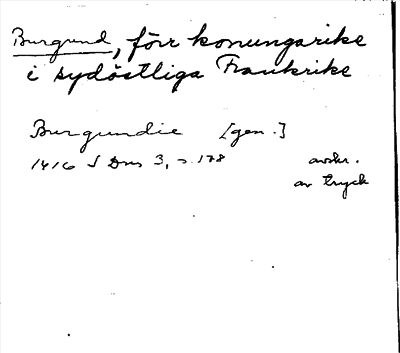 Burgund, förr konungarike
i sydöstliga Frankrike
Burgundie [gen.]
1416 S Dns 3, s. 178 avskr.
av tryck